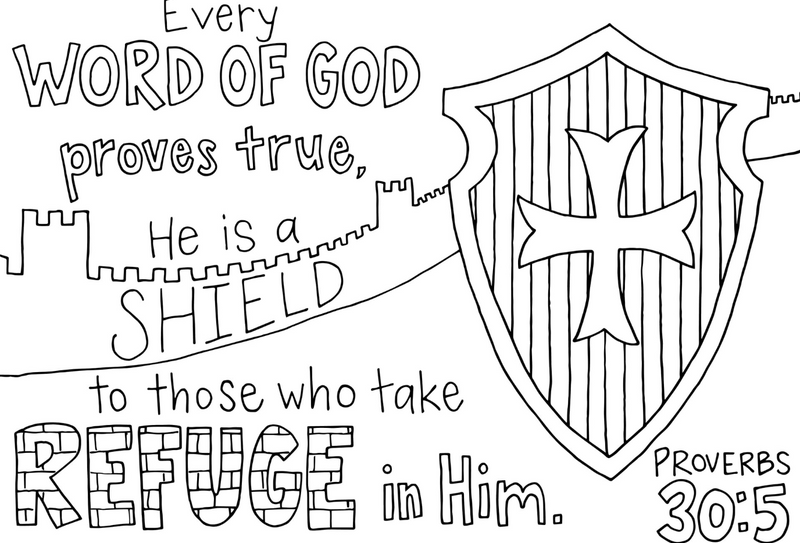 Every
WORD OF GOD
proves true,
He is a
SHIELD
to those who take
REFUGE in Him.
PROVERBS
30:5